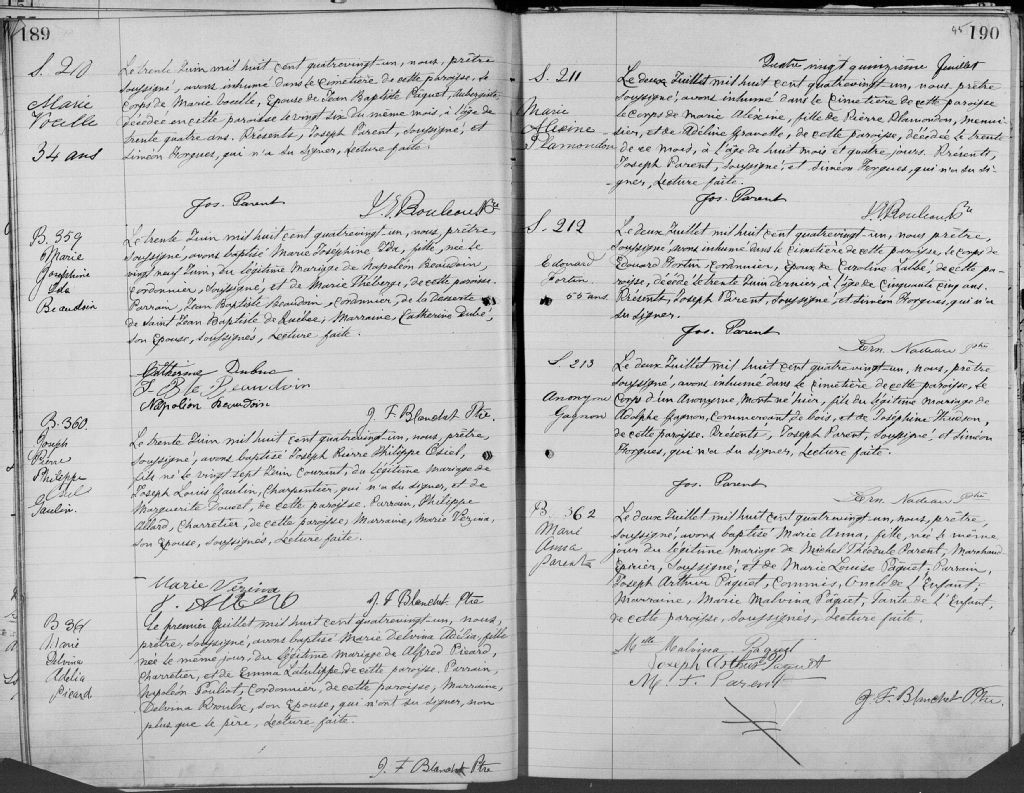 189
S. 210
Marie
Voelle
34 ans
Le trente Juin mil huit cent quatrevingt-un, nous, prêtre
soussigné, avons inhumé dans le cimetière de cette paroisse, le
corps de Marie Voelle, Epouse de Jean Baptiste Paquet, Aubergiste,
décédée en cette paroisse le vingt six du même mois, à l'âge de
trente quatre ans. Présents, Joseph Parent, soussigné, et
Siméon Forgues, qui n'a su signer, Lecture faite.
Jos. Parent
Rouleau Ptre
B. 359
Marie
Josephine
Ida
Beaudoin
Le trente Juin mil huit cent quatrevingt-un, nous, prêtre,
soussigné, avons baptisé Marie Joséphine Ida, fille, née le
vingt neuf Juin, du légitime Mariage de Napoléon Beaudoin,
Cordonnier, soussigné, et de Marie Théberge, de cette paroisse.
Parrain, Jean Baptiste Beaudoin, Cordonnier, de la desserte
de Saint Jean Baptiste de Québec, Marraine, Catherine Dubé,
son Epouse, soussignés, Lecture faite.
Catherine Dubuc
J Bte Beaudoin
Napoléon Beaudoin
J. F Blanchet Ptre.
B. 360
Joseph
Pierre
Philippe
Gaulin.
Le trente Juin mil huit cent quatrevingt-un, nous, prêtre,
soussigné, avons baptisé Joseph Pierre Philippe
fils né le vingt sept Juin Courant, du légitime mariage de
Joseph Louis Gaulin, Charpentier, qui n'a su signer, et de
Marguerite Doucet, de cette paroisse, Parrain, Philippe
Allard, Charretier, de cette paroisse, Marraine, Marie Vézina,
son Epouse, soussignés, Lecture faite.
Marie Vézina
J. F Blanchet Ptre
B 361
Marie
Delvina
Adélia
Picard
Le premier Juillet mil huit cent quatrevingt-un, nous,
prêtre, soussigné, avons baptisé Marie Delvina Adélia, fille
née le même jour, du légitime mariage de Alfred Picard,
Charretier, et de Emma Latulippe, de cette paroisse, Parrain,
Napoléon Pouliot, Cordonnier, de cette paroisse, Marraine,
Delvina Proulx, son Epouse, qui n'ont su signer, non
plus que le père, Lecture faite.
J. F Blanchet Ptre
45 190
Quatre vingt quinzième feuillet
S. 211
Marie
Alexine
Plamondon
Le deux Juillet mil huit cent quatrevingt-un, nous prêtre
soussigné, avons inhumé dans le cimetière de cette paroisse
le corps de Marie Alexine, fille de Pierre Plamondon, menui-
sier, et de Déline Gravelle, de cette paroisse, décédée le trente
de ce mois, à l'âge de huit mois et quatre jours. Présents,
Joseph Parent, soussigné, et Siméon Forgues, qui n'a su si-
gner, Lecture faite.
Jos. Parent
Rouleau Ptre
S. 212
Edouard
Fortin
55 ans
Le deux Juillet mil huit cent quatrevingt-un, nous prêtre,
soussigné, avons inhumé dans le cimetière de cette paroisse, le corps de
Edouard Fortin Cordonnier, Epoux de Caroline Labbé, de cette pa-
roisse, décédé le trente Juin dernier, à l'âge de Cinquante cinq ans.
Présents, Joseph Parent, soussigné, et Siméon Forgues, qui n'a
su signer.
Jos. Parent
Fern. Nadeau ptre
S. 213
Anonyme
Gagnon
Le deux Juillet mil huit cent quatrevingt-un, nous, prêtre
soussigné, avons inhumé dans le cimetière de cette paroisse, le
Corps d'un Anonyme, mort né hier, fils du légitime mariage de
Adolphe Gagnon, Commerçant de bois, et de Joséphine Hudson,
de cette paroisse. Présents, Joseph Parent, soussigné, et Siméon
Forgues, qui n'a su signer, Lecture faite.
Jos. Parent
Fern. Nadeau ptre
B. 362
Marie
Anna
Parent
Le deux Juillet mil huit cent quatrevingt-un, nous, prêtre,
soussigné, avons baptisé Marie Anna, fille, née le même
jour du légitime mariage de Michel Théodule Parent, Marchand
Epicier, soussigné, et de Marie Louise Paquet; Parrain,
Joseph Arthur Paquet, Commis, Oncle de l'Enfant,
Marraine, Marie Malvina Paquet, Tante de l'Enfant,
de cette paroisse, soussignés, Lecture faite.
Melle Malvina Paquet
Joseph Arthur Paquet
M. T. Parent
J. F. Blanchet Ptre.